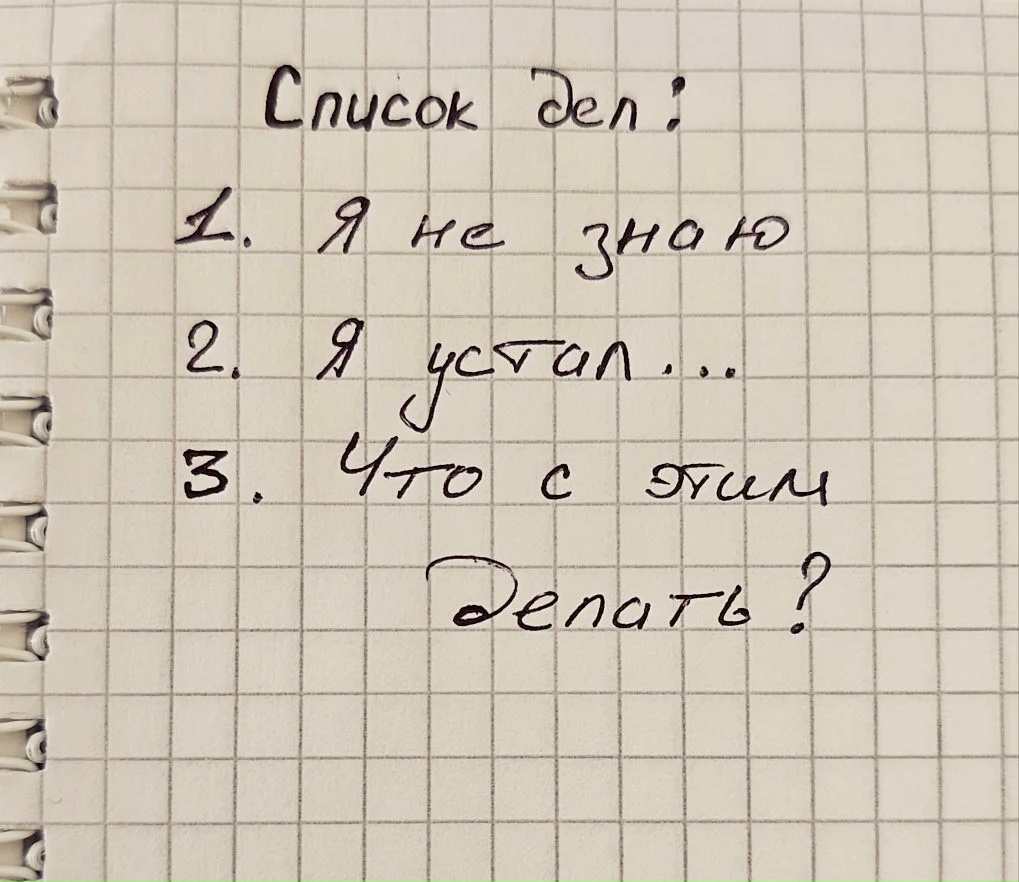 Список дел:
1. Я не знаю
2. Я устал...
3. Что с этим
делать?